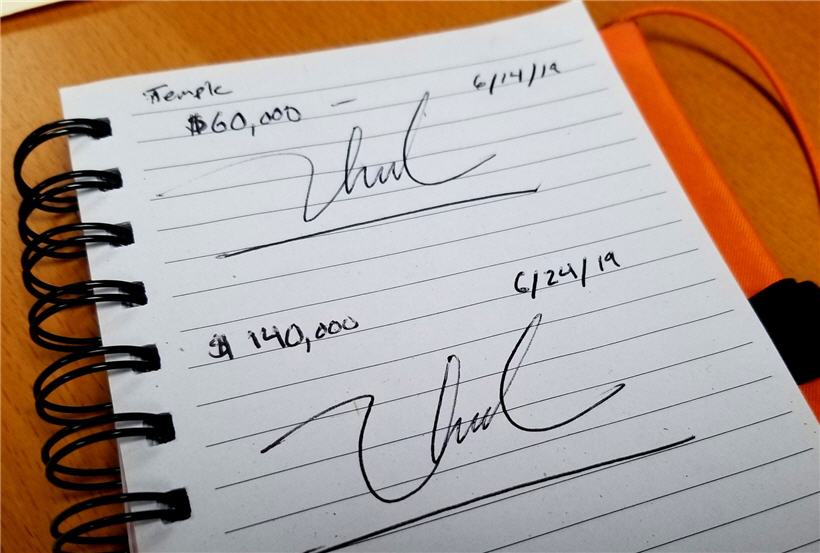 Temple 6/14/19
$60,000 -
6/24/19
$140,000